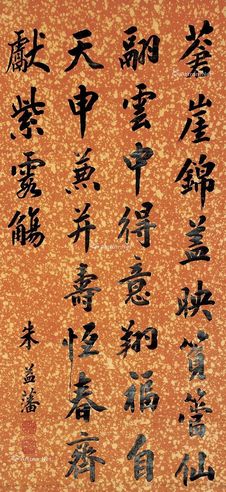 崖錦盖映篔簹仙
翮雲中得意翔福自
天申兼并壽恆春齊
獻紫霞觴
朱益藩